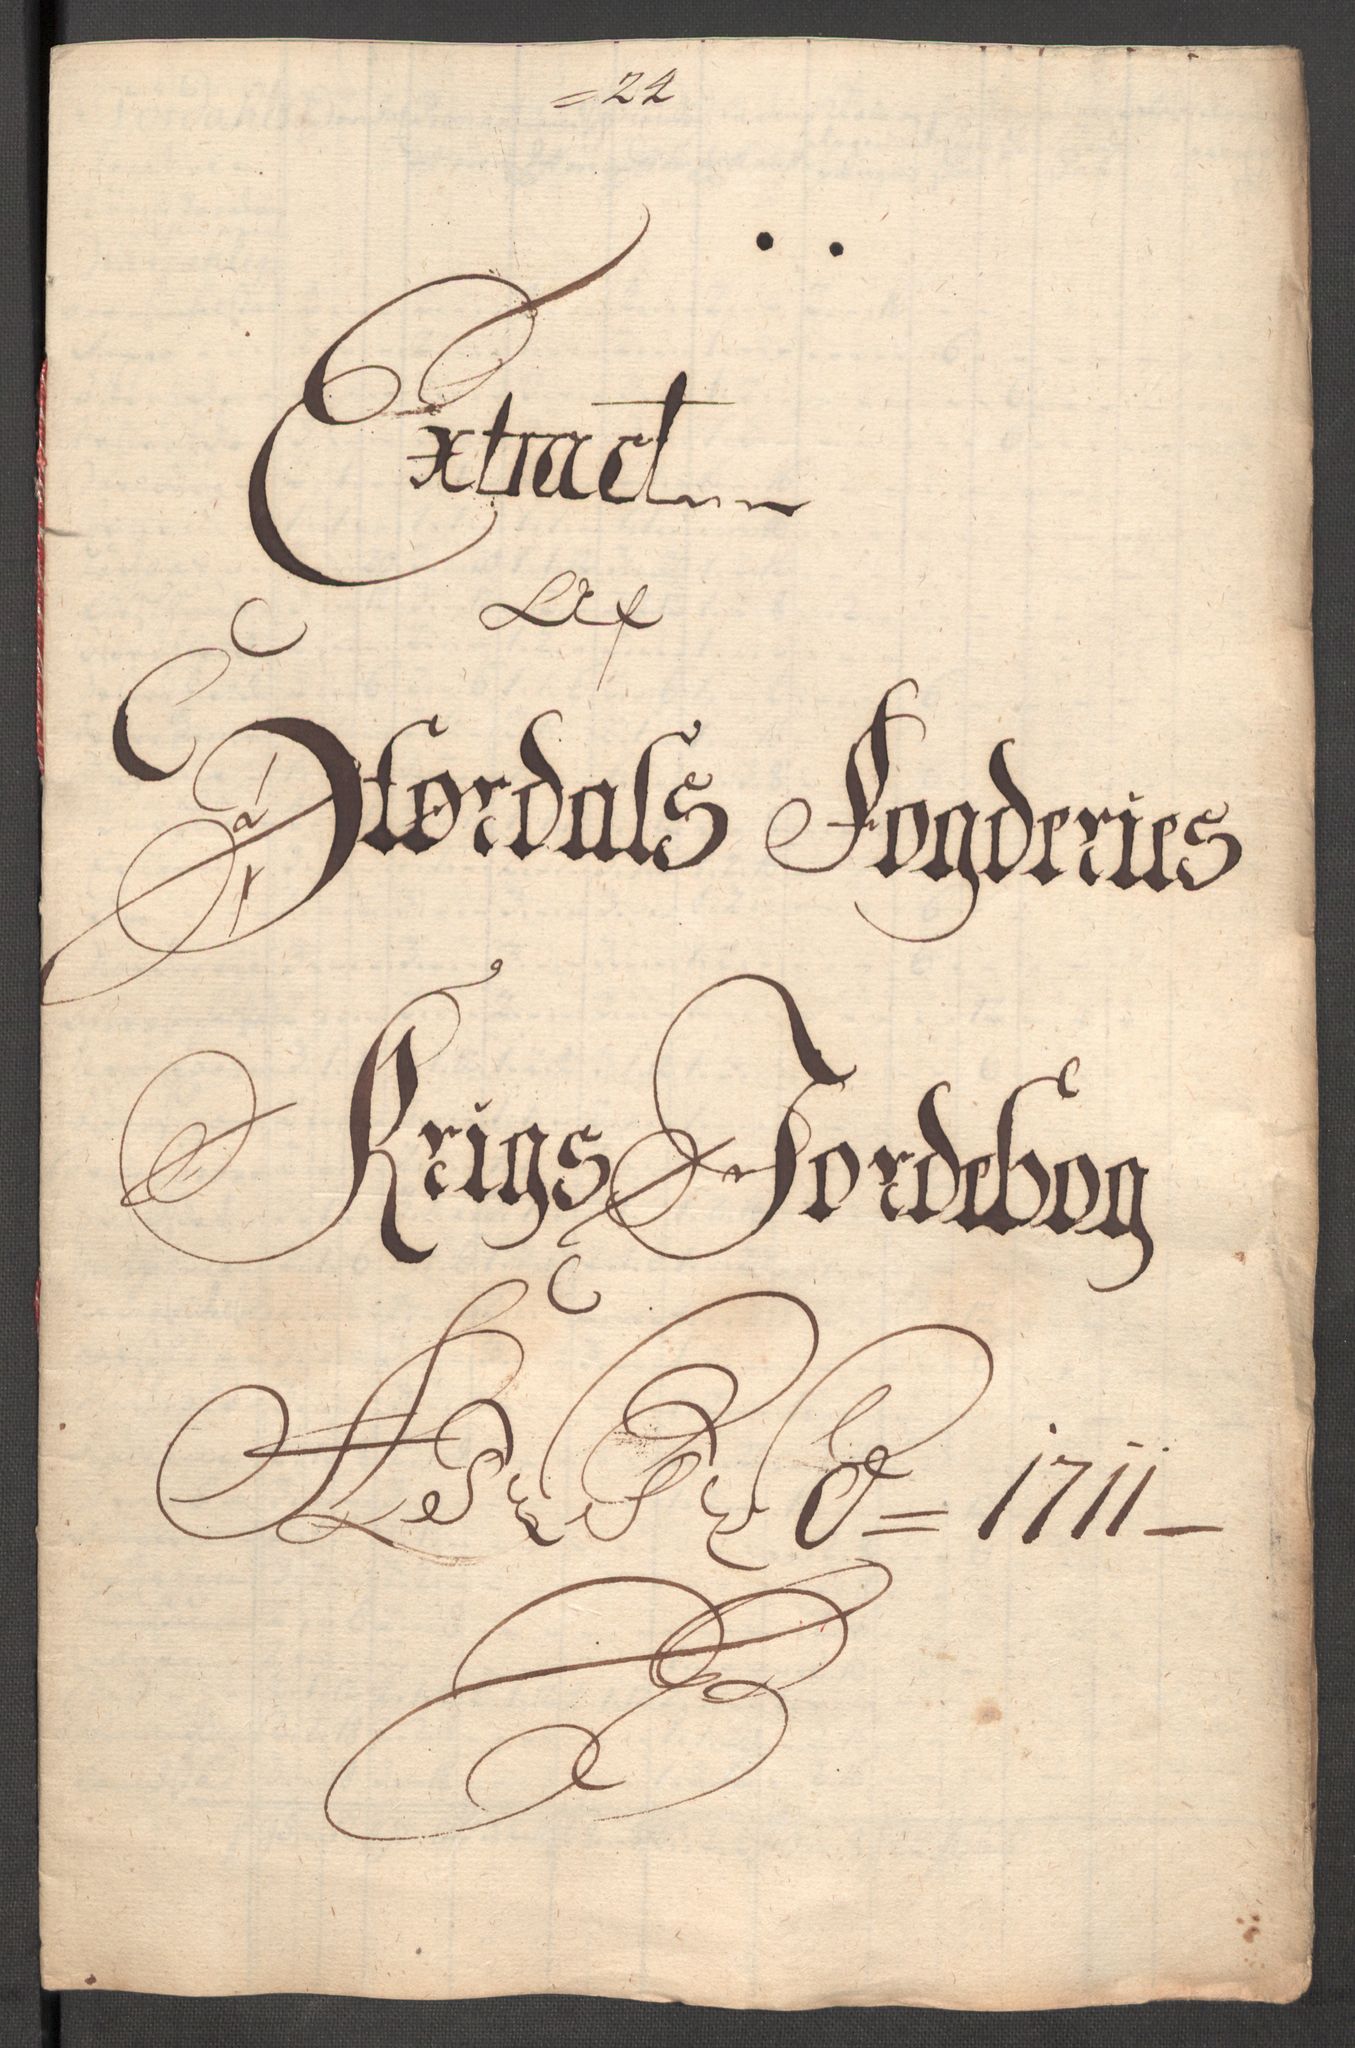 =24
Extract
Af
Størdals Fogderies
Krigs Jordebog
1711